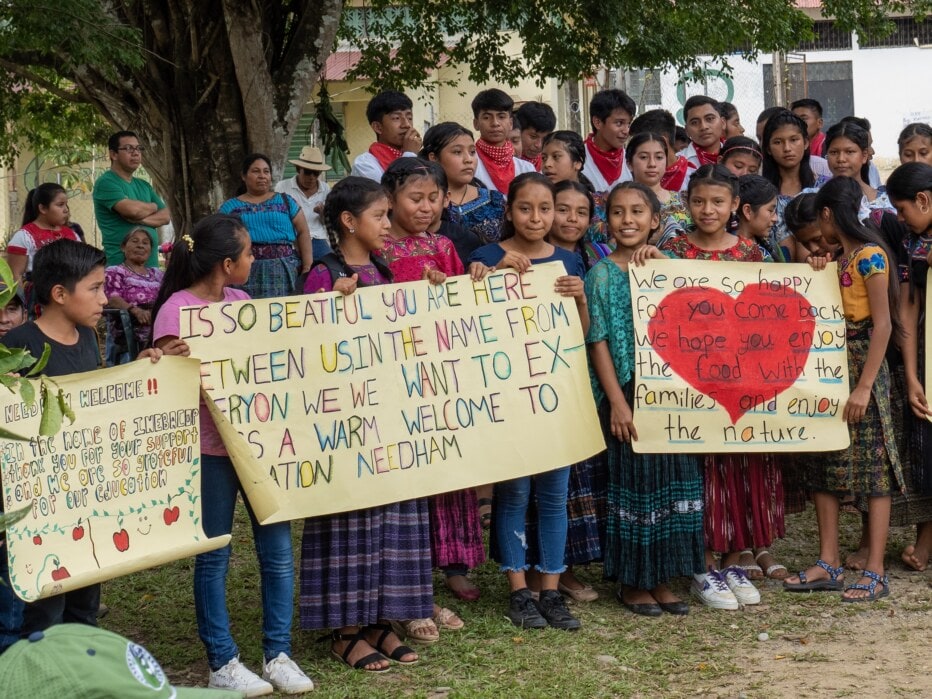 WELCOME !!
In the name of INEBASEB
thank you for your support
and we are so grateful
for our education
IS SO BEATIFUL YOU ARE HERE
ETWEEN US,IN THE NAME FROM
ERYON WE WE WANT TO EX-
S A WARM WELCOME TO
ATION NEEDHAM
We are so happy
For you come back
We hope you enjoy
the food with the
families and enjoy
the nature.